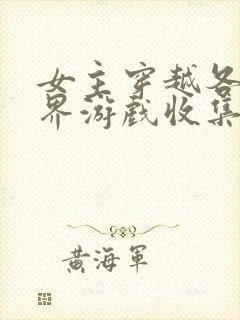 女主穿越各
界游戏收集
黄海軍